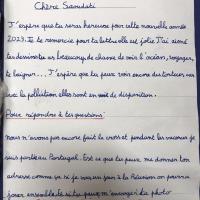 Chère Saandati
J'espère que tu seras heureuse pour cette nouvelle année
2023. Je te remercie pour ta lettre elle est jolie J'ai aimé
tes dessins tu as beaucoup de chance de voir l'océan, voyager,
te baigner... J'espère que tu peux voir encore des tortues car
avec la pollution elles sont en voit de disparition.
Pour répondre à tes questions:
nous n'avons pas encore fait le cross et pendant les vacances je
suis partie au Portugal. Est ce que tu peux me donner ton
adresse comme ça si je vais un jour à la Réunion on pourra
jouer ensemble et si tu peux m'envoyer du photo